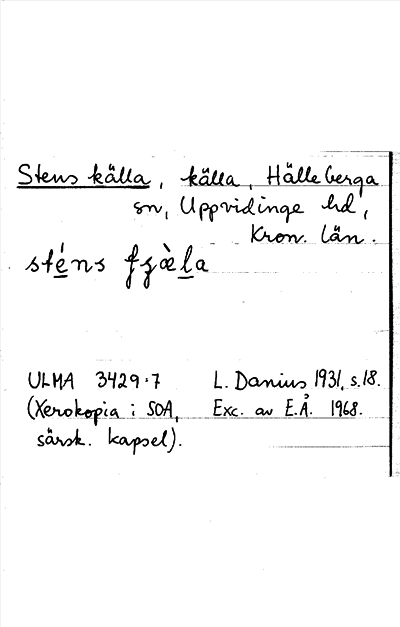 Stens källa, källa, Hälleberga
sn, Uppvidinge hd,
Kron. län.
sténs
ULMA 3429:7 L. Danius 1931, s.18.
(Xerokopia i SOA, Exc. av E.Å. 1968.
särsk. kapsel).